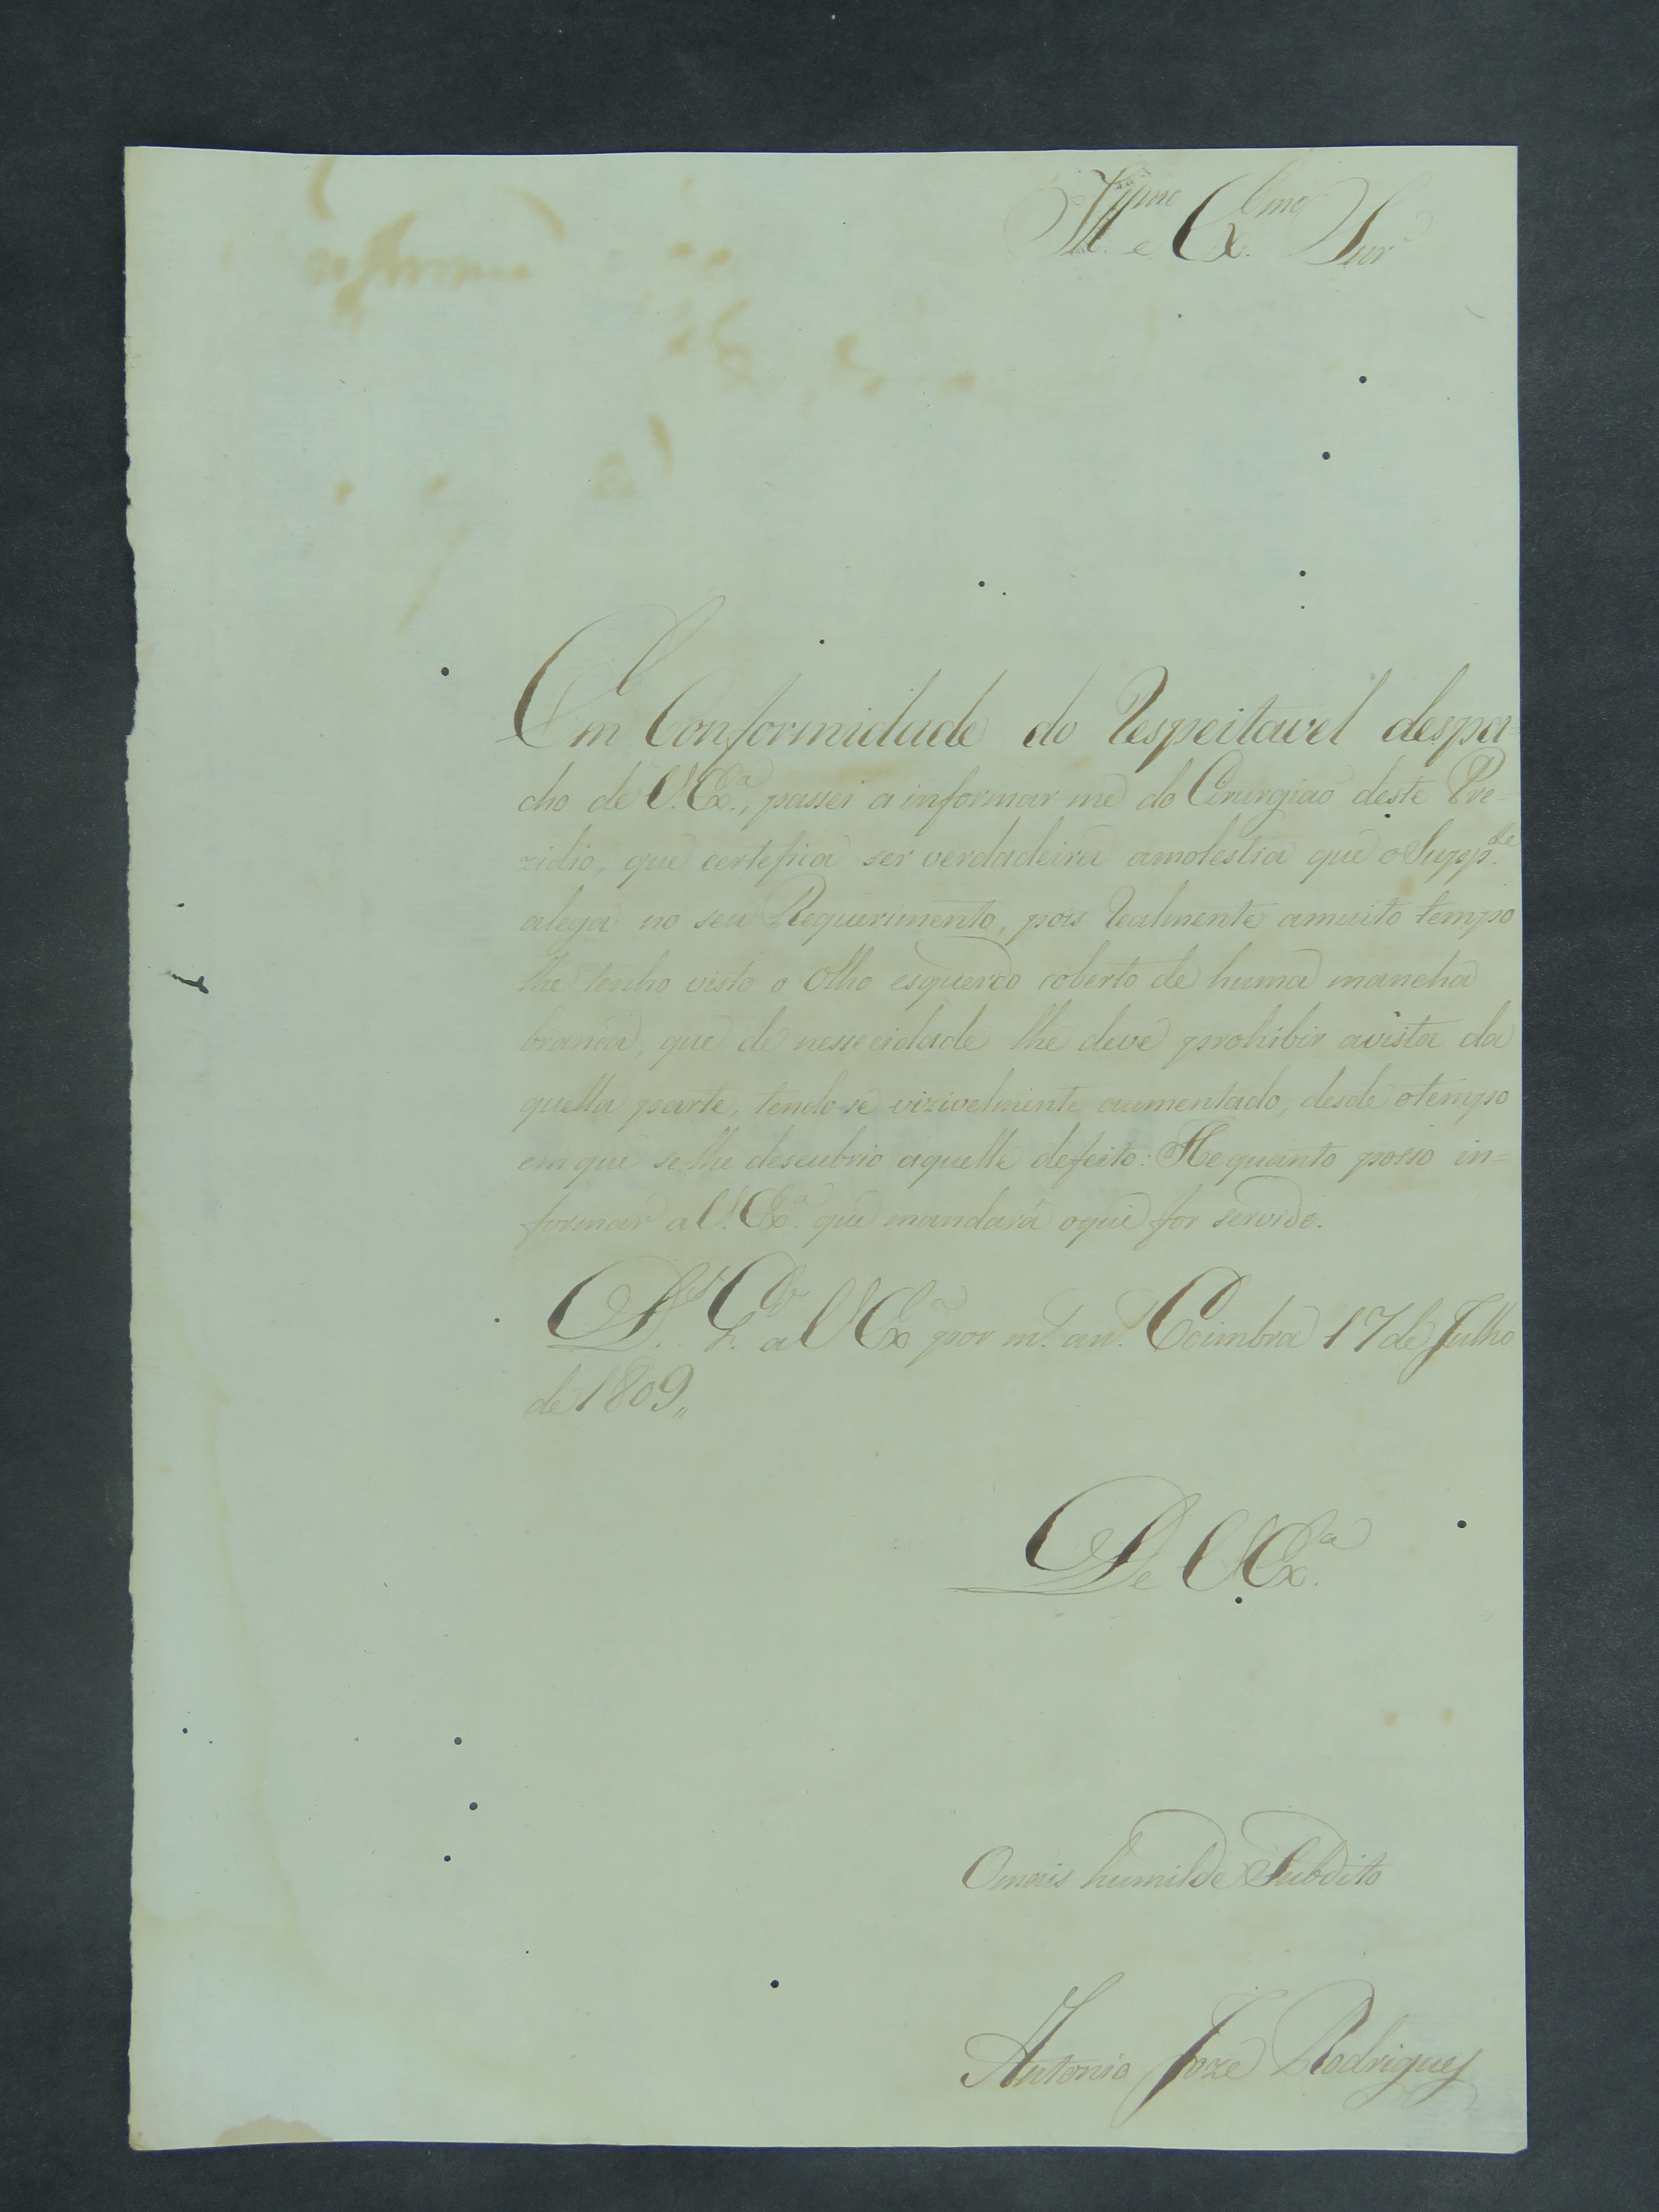 Ill.mo e Ex.mo Snr
Em Conformidade do Respeitavel despa-
cho de V. Ex.a, passei a informar-me do Cirurgiaõ deste Pre-
zidio, que certefica ser verdadeira amolestia que o Supp.te
alega no seu Requerimento, pois Realmente amuito tempo
lhe tenho visto o Olho esquerdo coberto de huma mancha
branca, que de nessecidade lhe deve prohibir avista da
quella parte, tendo-se vizivelmente aumentado, desde otempo
em que selhe descubrio aquelle defeito: He quanto posso in=
formar a V. Ex.a que mandará oque for servido.
D.s G.de a V Ex.a por m.s an.s Coimbra 17 de Julho
de 1809,,
De V Ex.a
Omais humilde Subdito
Antonio Joze Rodrigues